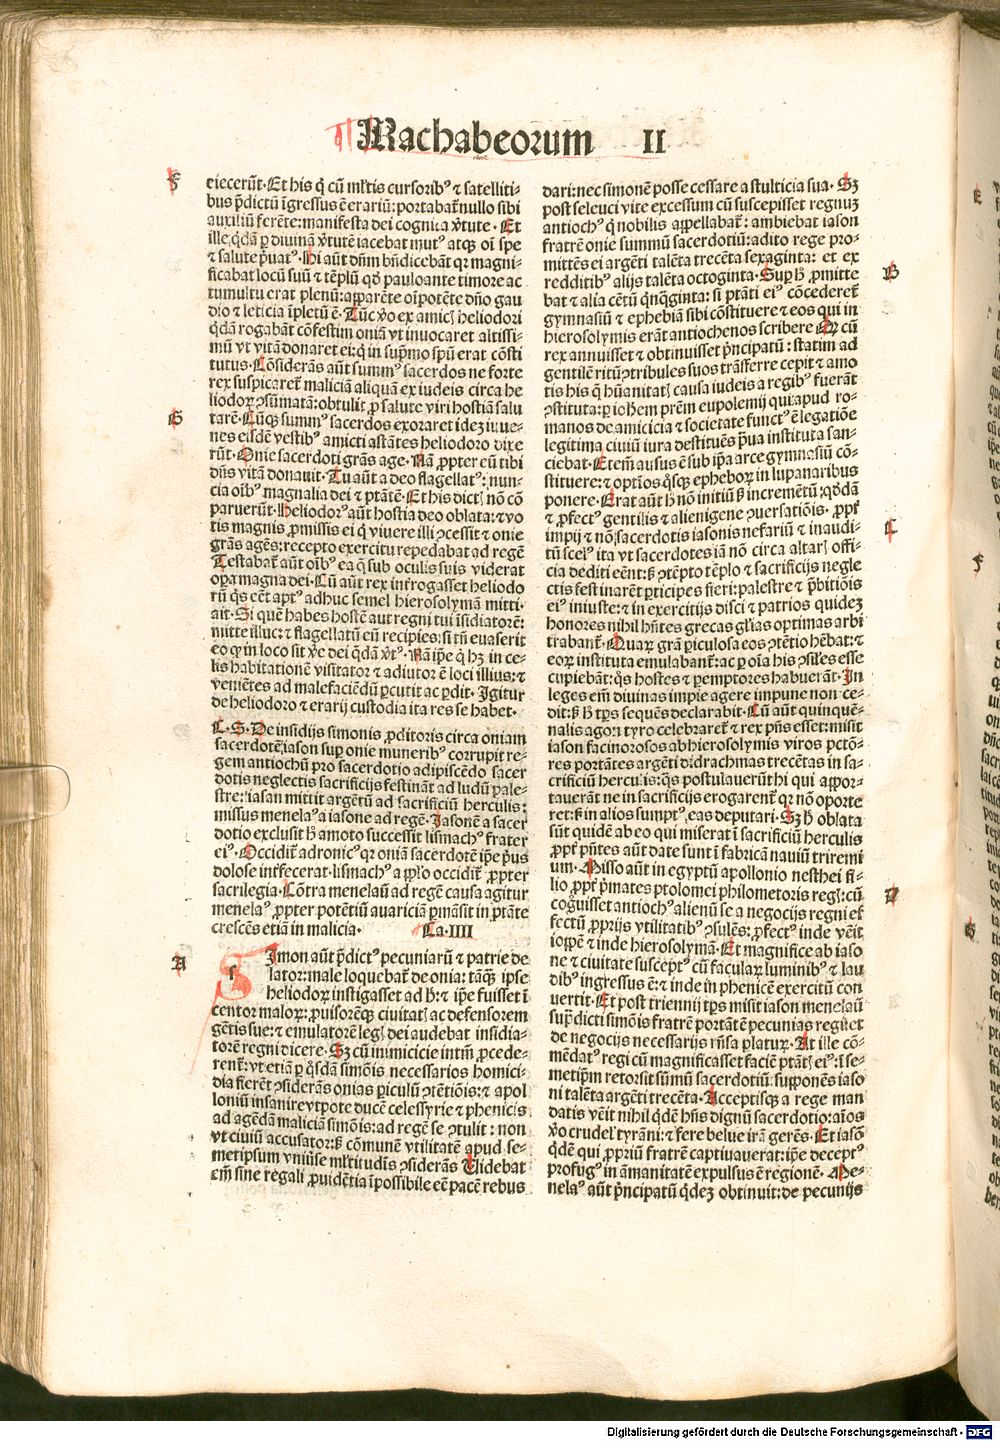 Machabeorum II
F
G
A
eiecerūt. Et his q̄ cū mltis cursoribꝰ ⁊ satelliti-
bus p̄dictū īgressus ē erariū: portabat̄ nullo sibi
auxiliū ferēte: manifesta dei cognita v̄tute. Et
ille qdā ꝑ diuinā v̄tutē iacebat mutꝰ atqꝫ oī spe
⁊ salute p̄uatꝰ. Hi aūt dn̄m bn̄dicebāt qꝛ magni-
ficabat locū suū ⁊ tēplū qd̄ pauloante timore ac
tumultu erat plenū: apparēte oīpotēte dn̄o gau
dio ⁊ leticia īpletū ē. Tūc v̄o ex amicꝭ heliodori
qdā rogabāt cōfestim oniā vt inuocaret altissi-
mū vt vitā donaret ei: q̄ in sup̄mo sp̄ū erat cōsti
tutus. Cōsiderās aūt summꝰ sacerdos ne forte
rex suspicaret̄ maliciā aliquā ex iudeis circa he
liodoꝝ ꝯsūmatā: obtulit ꝓ salute viri hostiā salu
tarē. Cūqꝫ summꝰ sacerdos exoraret idez iuue-
nes eisdē vestibꝰ amicti astātes heliodoro dixe
rūt. Onie sacerdoti grās age. Nā ꝓpter eū tibi
dn̄s vitā donauit. Tu aūt a deo flagellatꝰ: nun-
cia oībꝰ magnalia dei ⁊ ptātē. Et his dictꝭ nō cō
paruerūt. Heliodorꝰ aūt hostia deo oblata: ⁊ vo
tis magnis ꝓmissis ei q̄ viuere illi ꝯcessit ⁊ onie
grās agēs: recepto exercitu repedabat ad regē
Testabat̄ aūt oībꝰ ea q̄ sub oculis suis viderat
oꝑa magna dei. Cū aūt rex int̄rogasset heliodo
rū qs eēt aptꝰ adhuc semel hierosolymā mitti.
ait. Si quē habes hostē aut regni tui īsidiatorē:
mitte illuc: ⁊ flagellatū eū recipies: si tn̄ euaserit
eo ꝙ in loco sit v̄e dei qdā v̄tꝰ. Nā ip̄e q̄ hꝫ in ce-
lis habitationē visitator ⁊ adiutor ē loci illius: ⁊
veniētes ad malefaciēdū ꝑcutit ac ꝑdit. Igitur
de heliodoro ⁊ erarij custodia ita res se habet.
C. S. De insidijs simonis ꝓditoris circa oniam
sacerdotē, iason sup onie muneribꝰ corrupit re-
gem antiochū pro sacerdotio adipiscēdo sacer
dotis neglectis sacrificijs festināt ad ludū pale-
stre: iasan mittit argētū ad sacrificiū herculis:
missus menelaꝰ a iasone ad regē. Jasonē a sacer
dotio exclusit hꝭ amoto successit lismachꝰ frater
eiꝰ. Occidit̄ adronicꝰ qꝛ oniā sacerdotē ip̄e pꝰus
dolose int̄fecerat. lismachꝰ a pplo occidit̄ ꝓpter
sacrilegia. Cōtra menelaū ad regē causa agitur
menelaꝰ ꝓpter potētiū auariciā ꝑmāsit in ptāte
crescēs etiā in malicia. Ca. IIII
Simon aūt p̄dictꝰ pecuniarū ⁊ patrie de
lator: male loquebat̄ de onia: tāqꝫ ipse
heliodoꝝ instigasset ad hꝭ: ⁊ ip̄e fuisset ī
centor maloꝝ: ꝓuisorēqꝫ ciuitatꝭ ac defensorem
gētis sue: ⁊ emulatorē legꝭ dei audebat insidia-
torē regni dicere. Sꝫ cū inimicicie intm̄ ꝓcede-
rent̄: vt etiā ꝑ qsdā simōis necessarios homici-
dia fierēt ꝯsiderās onias ꝑiculū ꝯtētiōis: ⁊ apol
loniū insanire vtpote ducē celessyrie ⁊ phenicis
ad agēdā maliciā simōis: ad regē se ꝯtulit: non
vt ciuiū accusator: sꝫ cōmunē vtilitatē apud se-
metipsum vniuse mltitudīs ꝯsiderās. Uidebat
em̄ sine regali ꝓuidētia īpossibile eē pacē rebus
dari: nec simonē posse cessare a stulticia sua. Sꝫ
post seleuci vite excessum cū suscepisset regnuz
antiochꝰ q̄ nobilis appellabat̄: ambiebat iason
fratrē onie summū sacerdotiū: adito rege pro-
mittēs ei argēti talēta trecēta sexaginta: et ex
redditibꝰ alijs talēta octoginta. Suꝑ hꝭ ꝓmitte
bat ⁊ alia cētū qnqginta: si ptāti eiꝰ cōcederet̄
gymnasiū ⁊ ephebiā sibi cōstituere ⁊ eos qui in
hierosolymis erāt antiochenos scribere Qꝛ cū
rex annuisset ⁊ obtinuisset p̄ncipatū: statim ad
gentilē ritū ꝯtribules suos trāsferre cepit ⁊ amo
tis his q̄ hūanitatꝭ causa iudeis a regibꝰ fuerāt
ꝯstituta: ꝑ iohem prēm eupolemij qui apud ro-
manos de amicicia ⁊ societate functꝰ ē legatiōe
legitima ciuiū iura destituēs p̄ua instituta san-
ciebat. Etem̄ ausus ē sub ip̄a arce gymnasiū cō-
stituere: ⁊ optīos qsqꝫ epheboꝝ in lupanaribus
ponere. Erat aūt hꝭ nō initiū sꝫ incremētū: qddā
⁊ ꝓfectꝰ gentilis ⁊ alienigene ꝯuersatiōis. ꝓpt̄
impij ⁊ nō sacerdotis iasonis nefariū ⁊ inaudi-
tū scelꝰ ita vt sacerdotes iā nō circa altarꝭ offi-
cia dediti eēnt: sꝫ ꝯtēpto tēplo ⁊ sacrificijs negle
ctis festinarēt pticipes fieri: palestre ⁊ p̄bitiōis
eiꝰ iniuste: ⁊ in exercitijs disci ⁊ patrios quidez
honores nihil hn̄tes grecas gl̄ias optimas arbi
trabant̄. Quaꝝ grā ꝑiculosa eos ꝯtētio hēbat: ⁊
eoꝝ instituta emulabant̄: ac ꝑ oīa his ꝯsiles esse
cupiebāt: qs hostes ⁊ ꝑemptores habuerāt. In
leges em̄ diuinas impie agere impune non ce-
dit: sꝫ hꝭ tp̄s sequēs declarabit. Cū aūt quinquē-
nalis agon tyro celebraret̄ ⁊ rex pn̄s esset: misit
iason facinorosos ab hierosolymis viros pctō-
res portātes argēti didrachmas trecētas in sa-
crificiū herculis: qs postulauerūt hi qui appor-
tauerāt ne in sacrificijs erogarent̄ qꝛ nō oporte
ret: sꝫ in alios sumptꝰ eas deputari. Sꝫ hꝭ oblata
sūt quidē ab eo qui miserat ī sacrificiū herculis
ꝓpt̄ pn̄tes aūt date sunt ī fabricā nauiū triremi
um. Misso aūt in egyptū apollonio nesthei fi-
lio ꝓpt̄ p̄mates ptolomei philometoris regꝭ: cū
cogūisset antiochꝰ alienū se a negocijs regni ef
fectū ꝓprijs vtilitatibꝰ ꝯsulēs: ꝓfectꝰ inde vēit
ioppē ⁊ inde hierosolymā. Et magnifice ab iaso
ne ⁊ ciuitate susceptꝰ cū faculaꝝ luminibꝰ ⁊ lau
dibꝰ ingressus ē: ⁊ inde in phenicē exercitū con
uertit. Et post triennij tp̄s misit iason menelaū
sup̄dicti simōis fratrē portātē pecunias regi: ⁊ et
de negocijs necessarijs rn̄sa platuꝝ. At ille cō-
mēdatꝰ regi cū magnificasset faciē ptātꝭ eiꝰ: ī se-
metip̄m retorsit sūmū sacerdotiū: supponēs iaso
ni talēta argēti trecēta. Acceptisqꝫ a rege man
datis vēit nihil qdē hn̄s dignū sacerdotio: aīos
v̄o crudelꝭ tyrāni: ⁊ fere belue irā gerēs. Et iasō
qdē qui ꝓpriū fratrē captiuauerat: ip̄e deceptꝰ
profugꝰ in āmanitatē expulsus ē regionē. Me-
nelaꝰ aūt p̄ncipatū qdez obtinuit: de pecunijs
B
C
D
Digitalisierung gefördert durch die Deutsche Forschungsgemeinschaft - DFG